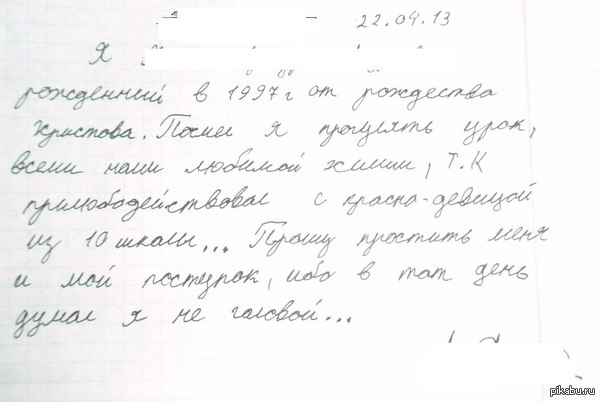 22.04.13
Я
рожденний в 1997 г от рождества
Христова. Посмел я прогулять урок,
всеми нами любимой химии, т.к
прилюбодействовал с красна-девицой
из 10 школы... Прошу простить меня
и мой поступок, ибо в тот день
думал я не головой...
pikabu.ru